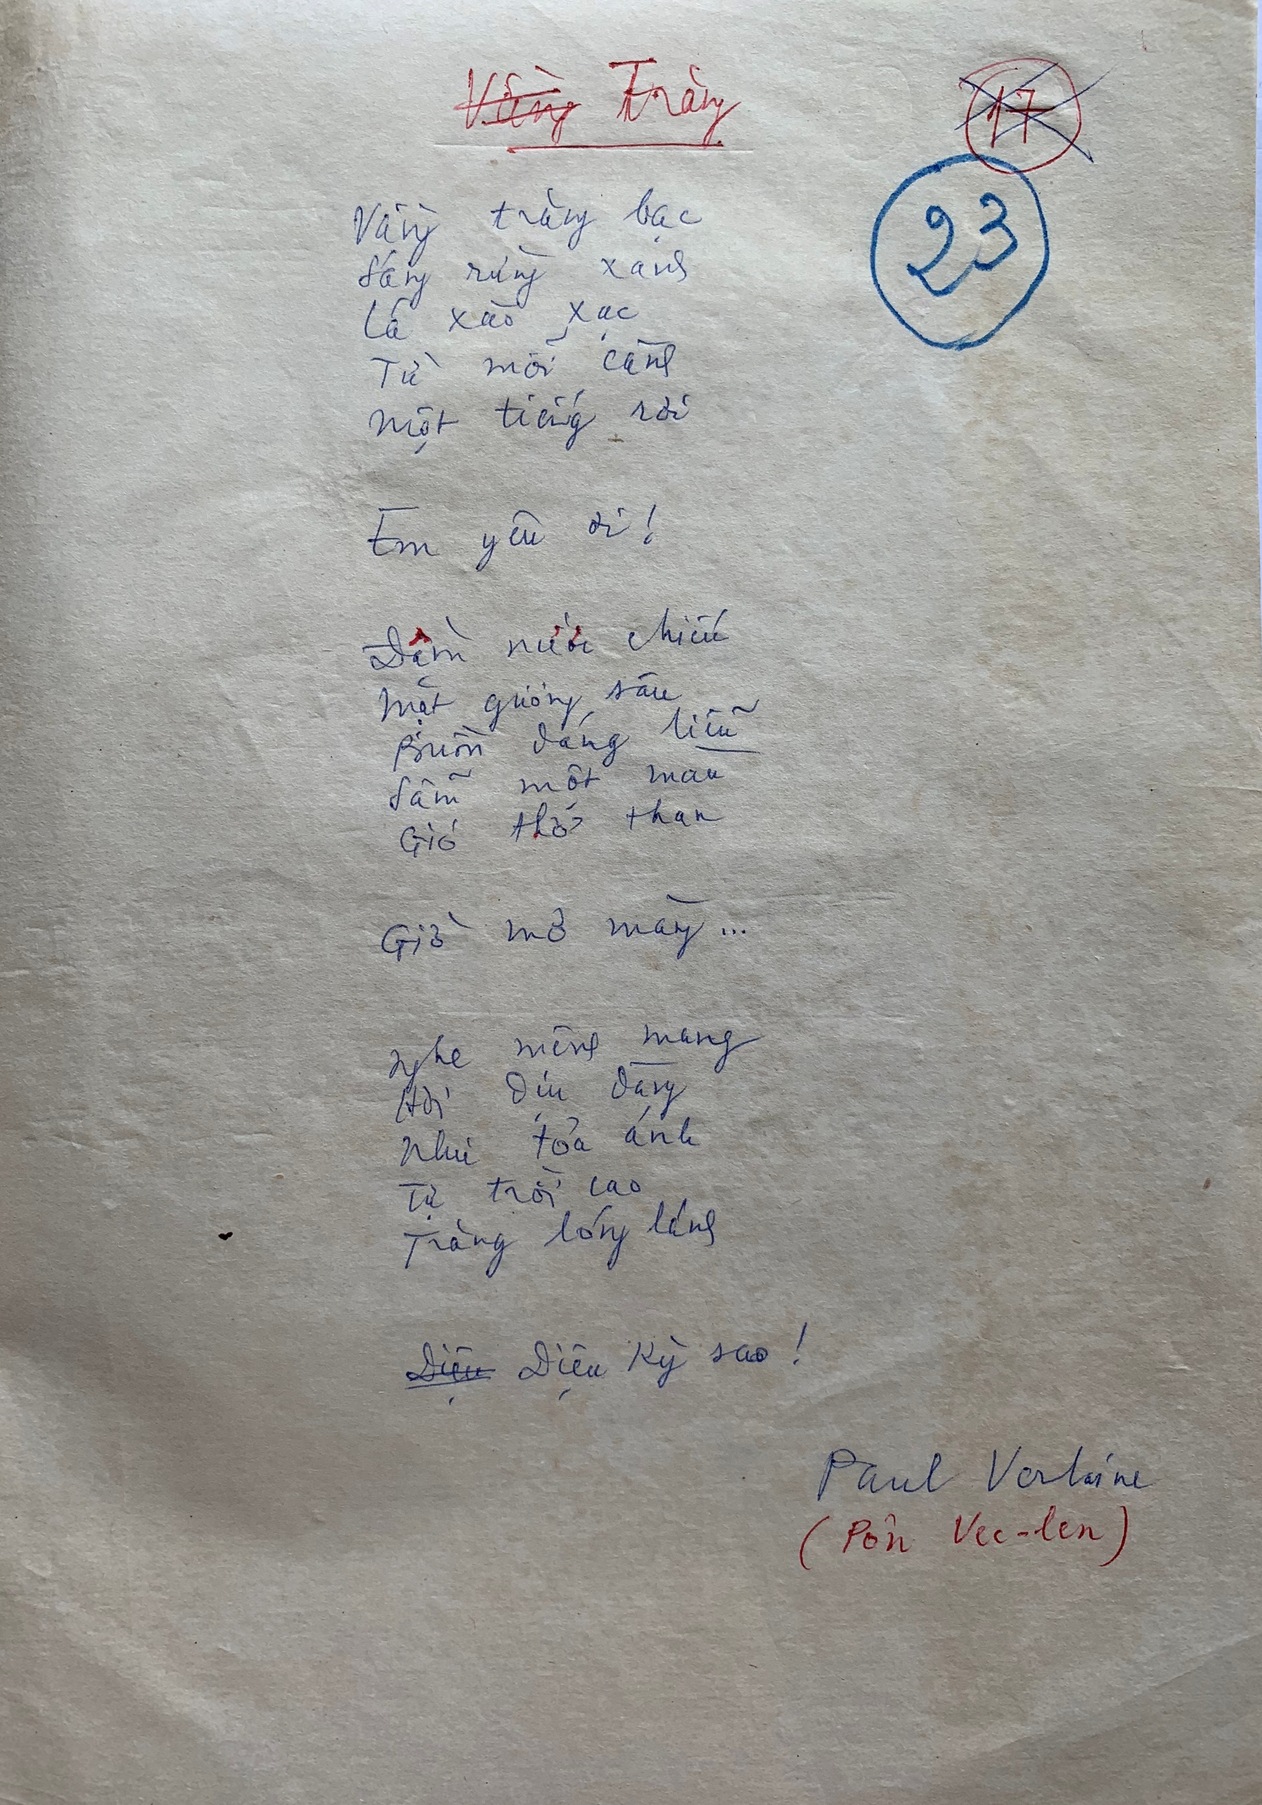 Vầng Trăng
17
23
Vầng trăng bạc
Sáng rừng xanh
Lá xào xạc
Từ mỗi cành
Một tiếng rơi
Em yêu ơi!
Đầm nước chiếu
Mặt gương sâu
Buồn dáng liễu
Sẫm một màu
Gió thở than
Giờ mơ màng...
Nghe mênh mang
Hơi dịu dàng
Như tỏa ánh
Tự trời cao
Trăng lóng lánh
Diệu Diệu Kỳ sao!
Paul Verlaine
(Pôn Vec-len)